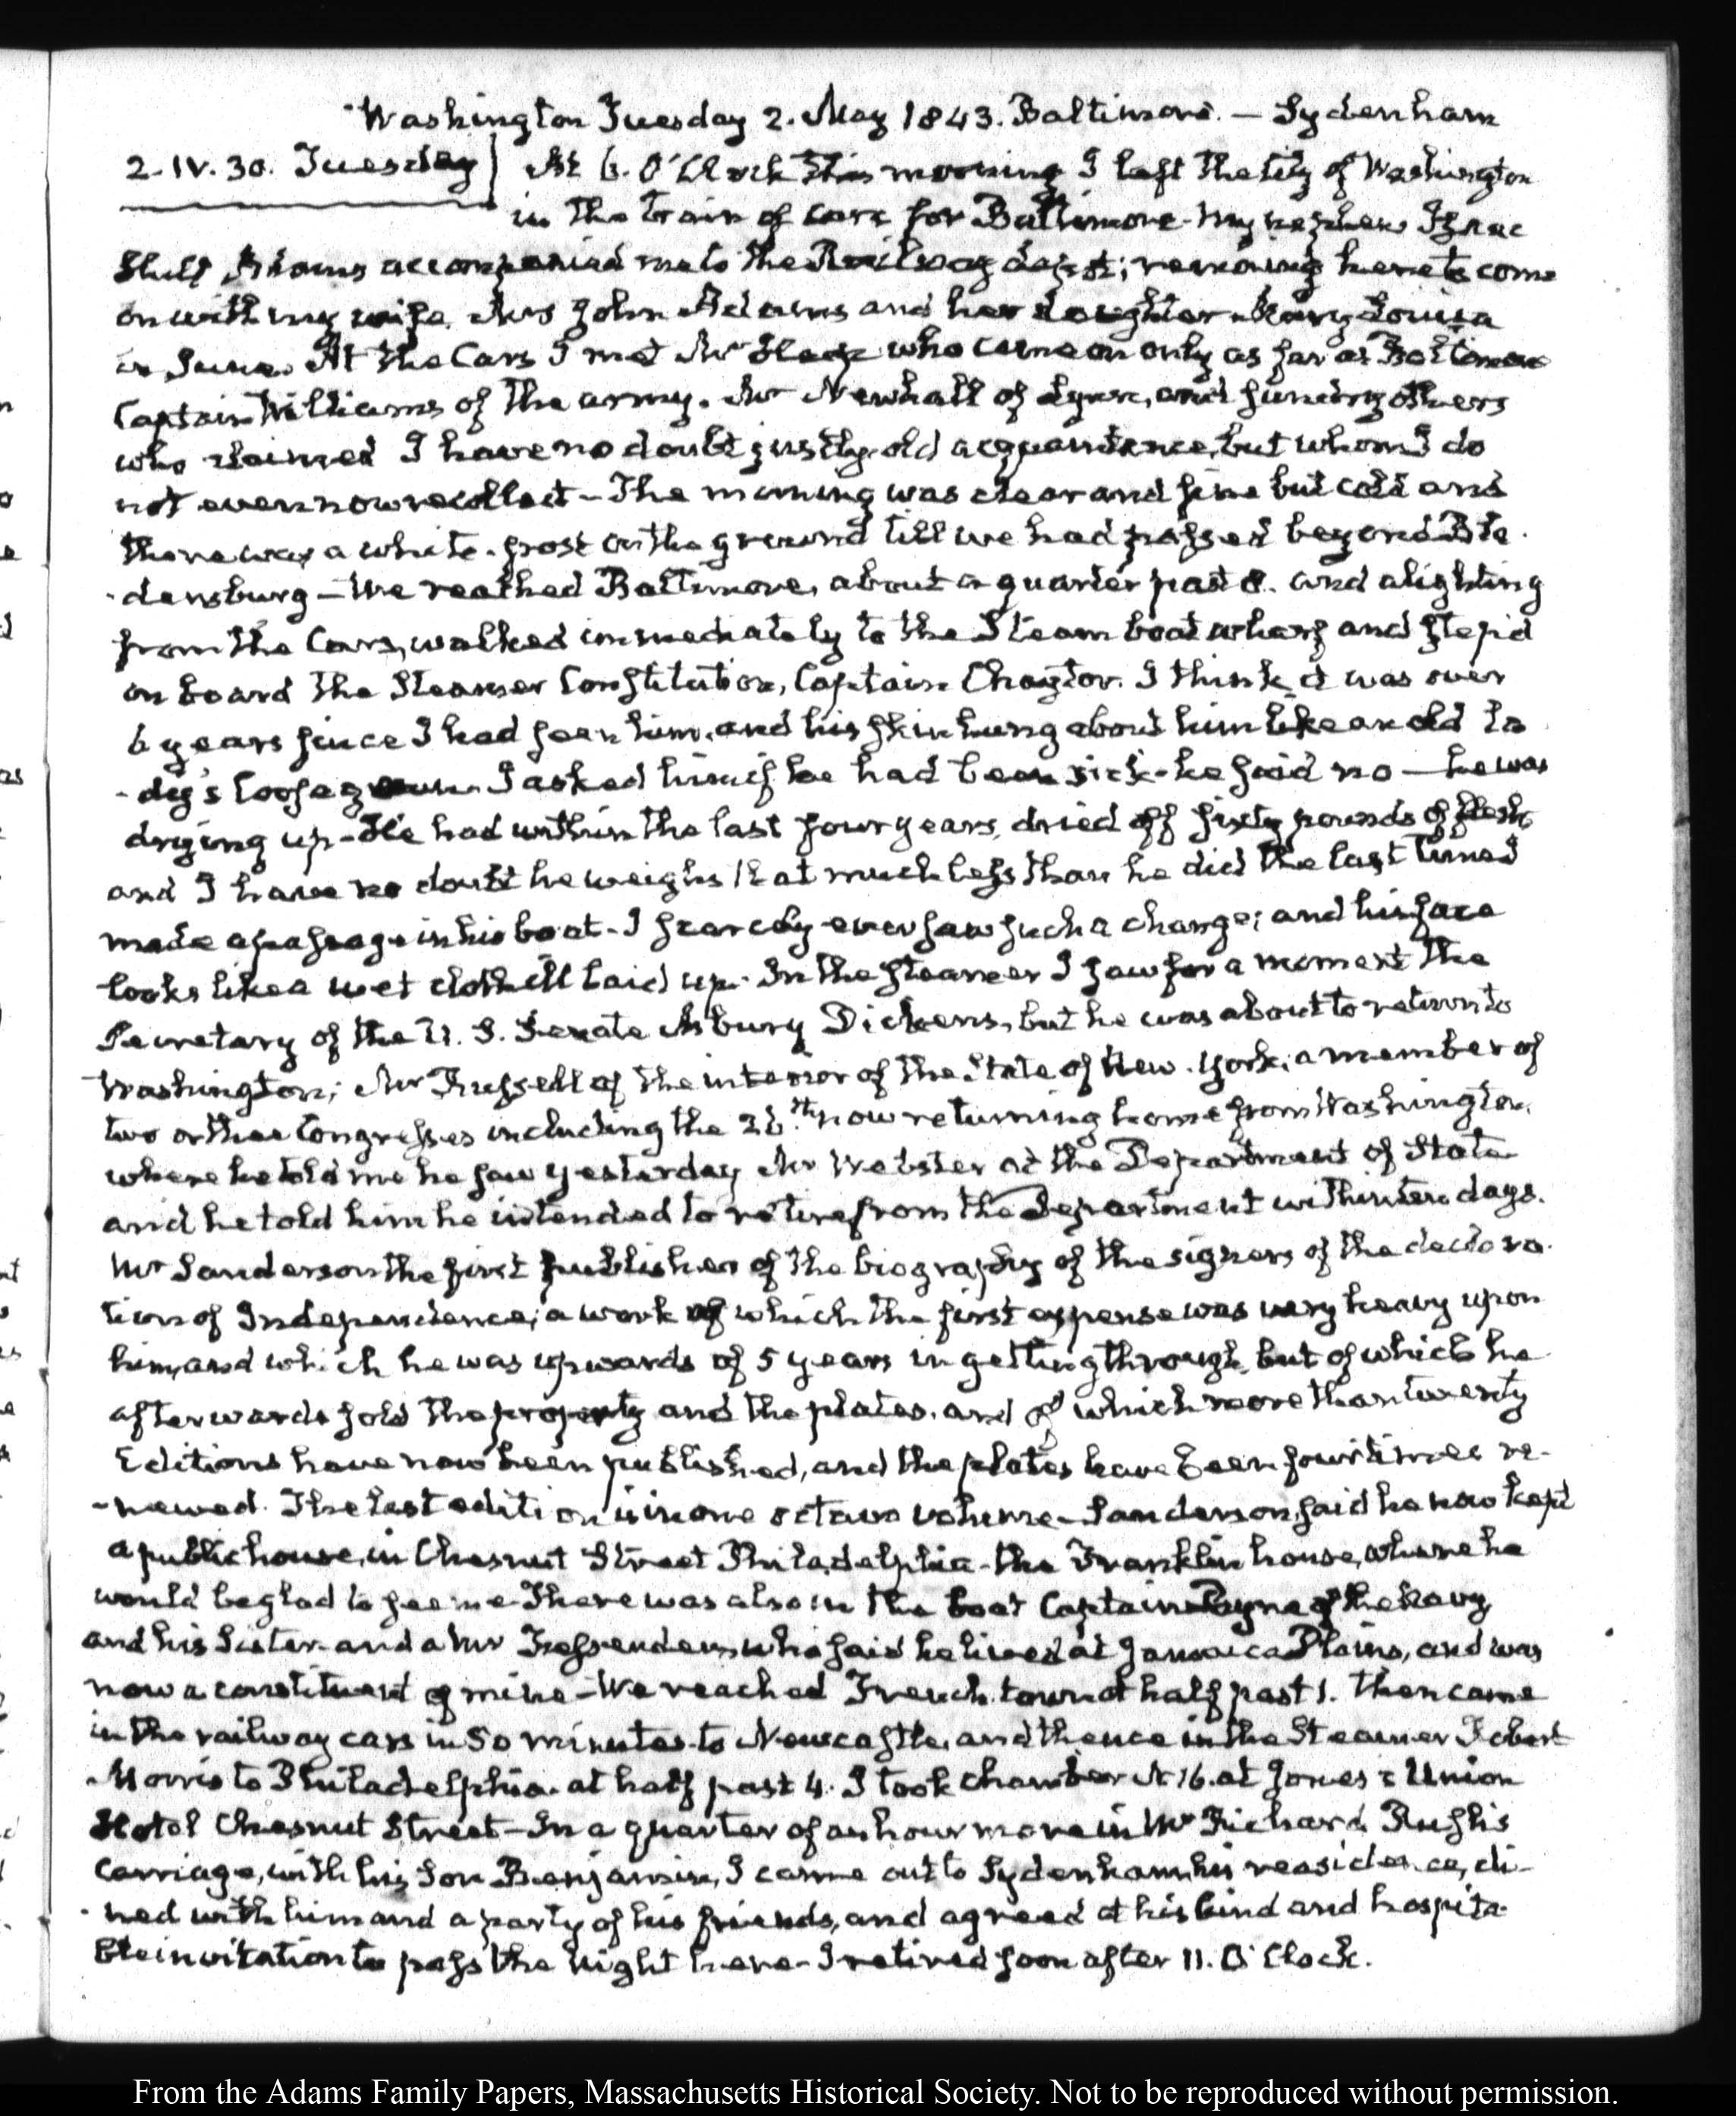 Washington Tuesday 2. May 1843. Baltimore. — Sydenham
2. IV. 30. Tuesday At 6. O'Clock this morning I left the City of Washington
in the train of cars for Baltimore. My nephew Isaac
Hull Adams accompanied me to the Railway depot; remaining here to come
on with my wife, Mrs John Adams and her daughter Mary Louisa
in June. At the Cars I met Mr who came on only as far as Baltimore
Captain Williams of the army. Mr Newhall of Lynn, and sundry others
who claimed I have no doubt justly old acquaintance, but whom I do
not even now recollect – The morning was clear and fine but cold and
there was a white frost on the ground till we had passed beyond Bla
-densburg – We reached Baltimore, about a quarter past 8. and alighting
from the Cars, walked immediately to the Steam boat wharf and step'd
on board the Steamer Constitution, Captain Chaytor. I think it was over
6 years since I had seen him, and his skin hung about him like an old la
-dy's loose gown. I asked him if he had been sick – he said no — he was
drying up – He had within the last four years, dried off sixty pounds of flesh
and I have no doubt he weighs that much less than he did the last time I
made a passage in his boat – I scarcely ever saw such a change; and his face
looks like a wet cloth ill laid up. In the steamer I saw for a moment the
Secretary of the U. S. Senate Asbury Dickens, but he was about to return to
Washington; Mr Russell of the interior of the State of New. York; a member of
two or three Congresses including the 26.th now returning home from Washington,
where he told me he saw yesterday Mr Webster at the Department of State
and he told him he intended to retire from the Department within ten days.
Mr Sanderson the first publisher of the biography of the signers of the declara
tion of Independence; a work of which the first expense was very heavy upon
him, and which he was upwards of 5 years in getting through, but of which he
afterwards sold the property and the plates, and of which more than twenty
Editions have now been published, and the plates have been four times re-
-newed. The last edition is in one octavo volume – Sanderson said he now kept
a public house, in Chesnut Street Philadelphia – the Franklin house, where he
would be glad to see me. There was also in the boat Captain Payne of the Navy
and his Sister and a Mr Fessenden, who said he lived at Jamaica Plains, and was
now a constituent of mine – We reached French.town at half past 1. then came
in the railway cars in 50 minutes to Newcastle, and thence in the Steamer Robert
Morris to Philadelphia. at half past 4. I took chamber N 16. at Jones's Union
Hotel Chesnut Street – In a quarter of an hour more in Mr Richard Rush's
Carriage, with his Son Benjamin, I came out to Sydenham, his residence, di-
-ned with him and a party of his friends, and agreed at his kind and hospita
ble invitation to pass the night here – I retired soon after 11. O'Clock.
From the Adams Family Papers, Massachusetts Historical Society. Not to be reproduced without permission.